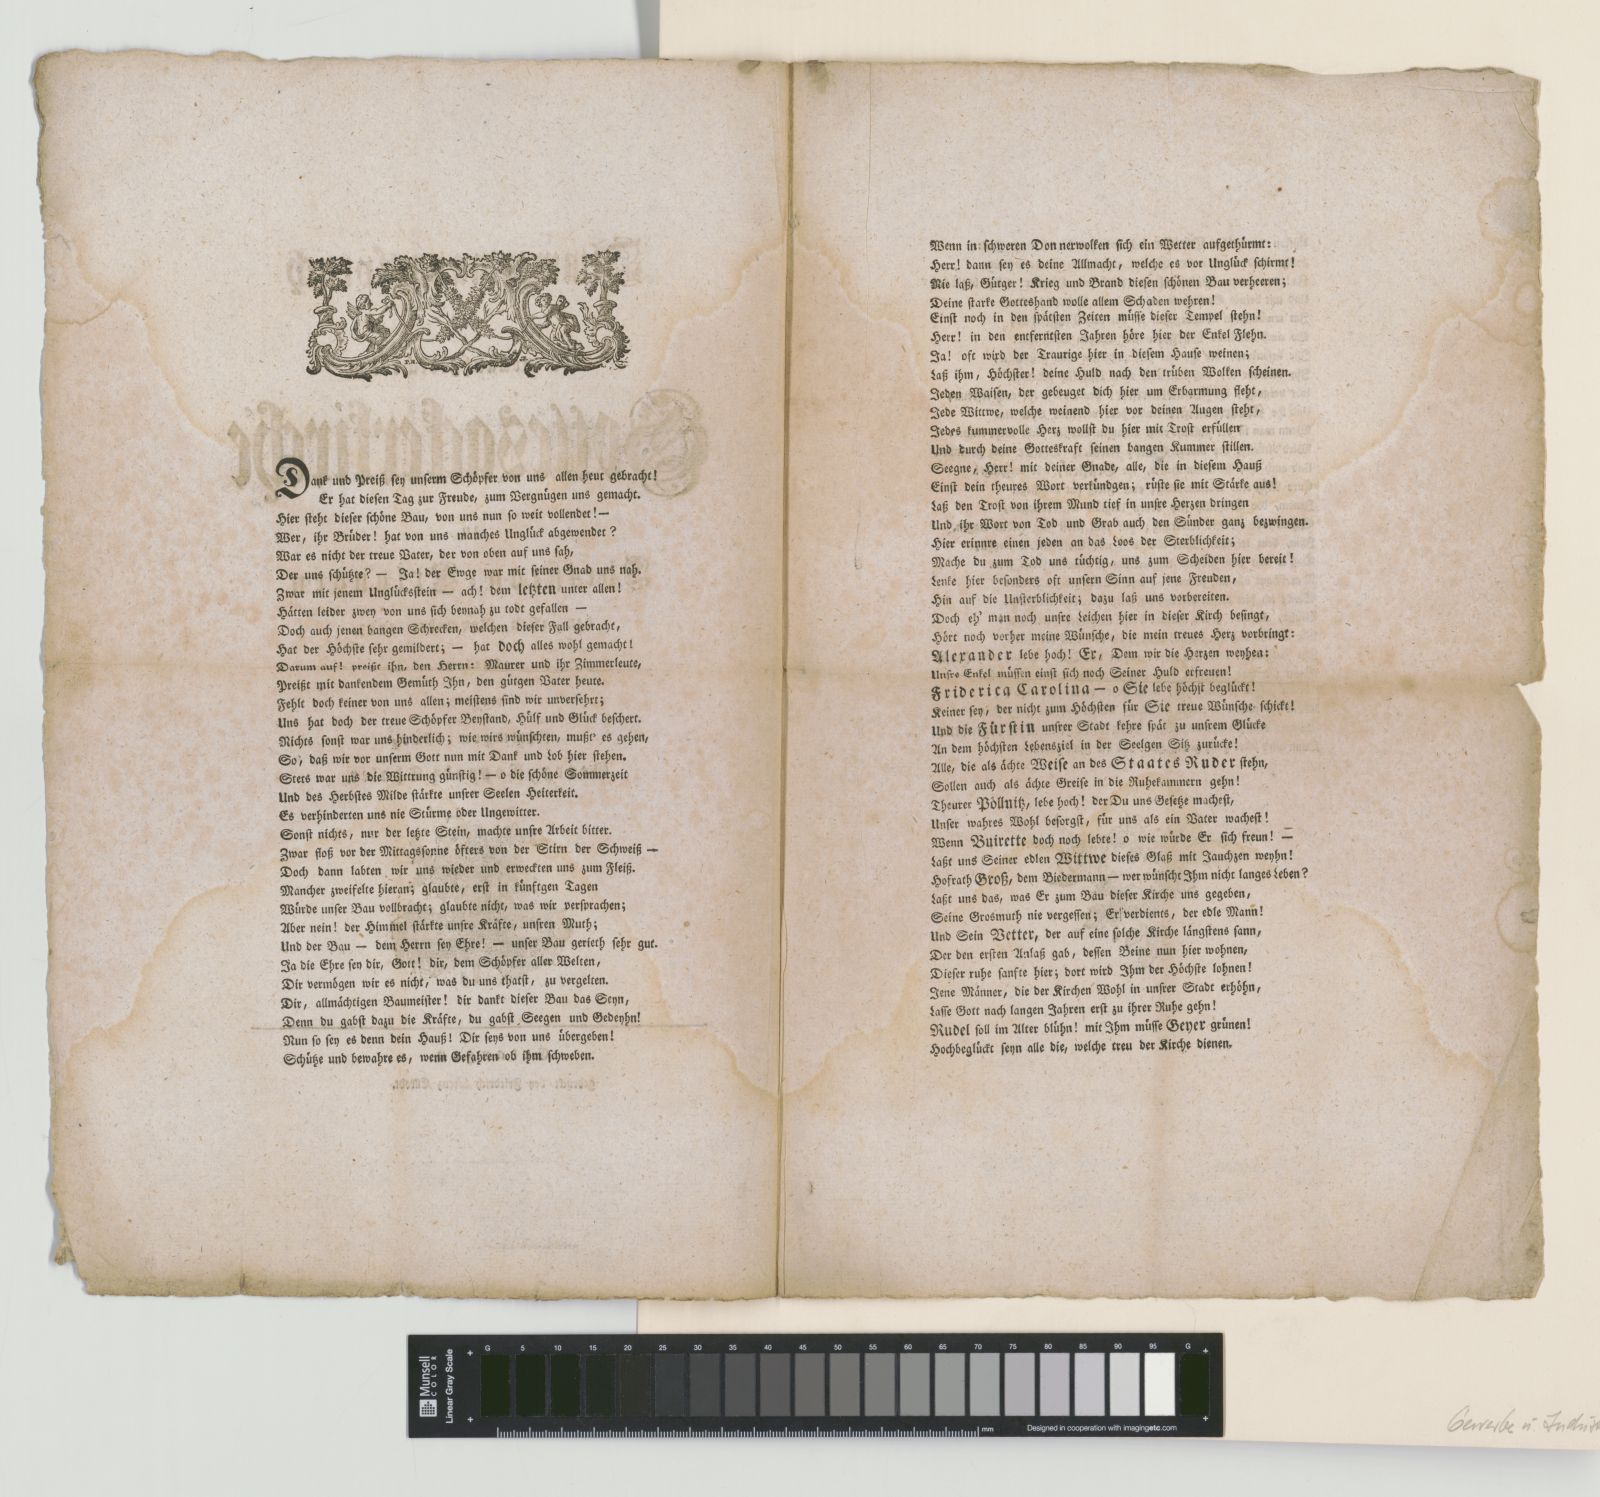 Dank und Preiß sey unserm Schöpfer von uns allen heut gebracht!
Er hat diesen Tag zur Freude, zum Vergnügen uns gemacht.
Hier steht dieser schöne Bau, von uns nun so weit vollendet! —
Wer, ihr Brüder! hat von uns manches Unglück abgewendet?
War es nicht der treue Vater, der von oben auf uns sah,
Der uns schützte? — Ja! der Ewge war mit seiner Gnad uns nah.
Zwar mit jenem Unglücksstein — ach! dem letzten unter allen!
Hätten leider zwey von uns sich beynah zu todt gefallen —
Doch auch jenen bangen Schrecken, welchen dieser Fall gebracht,
Hat der Höchste sehr gemildert; — hat doch alles wohl gemacht!
Darum auf! preißt ihn, den Herrn: Maurer und ihr Zimmerleute,
Preißt mit dankendem Gemüth Ihn, den gütgen Vater heute.
Fehlt doch keiner von uns allen; meistens sind wir unversehrt;
Uns hat doch der treue Schöpfer Beystand, Hülf und Glück beschert.
Nichts sonst war uns hinderlich; wie wirs wünschten, mußt' es gehen,
So, daß wir vor unserm Gott nun mit Dank und Lob hier stehen.
Stets war uns die Wittrung günstig! — o die schöne Sommerzeit
Und des Herbstes Milde stärkte unsrer Seelen Heiterkeit.
Es verhinderten uns nie Stürme oder Ungewitter.
Sonst nichts, nur der letzte Stein, machte unsre Arbeit bitter.
Zwar floß vor der Mittagssonne öfters von der Stirn der Schweiß —
Doch dann labten wir uns wieder und erweckten uns zum Fleiß.
Mancher zweifelte hieran; glaubte, erst in künftgen Tagen
Würde unser Bau vollbracht; glaubte nicht, was wir versprachen;
Aber nein! der Himmel stärkte unsre Kräfte, unsren Muth;
Und der Bau — dem Herrn sey Ehre! — unser Bau gerieth sehr gut.
Ja die Ehre sey dir, Gott! dir, dem Schöpfer aller Welten,
Dir vermögen wir es nicht, was du uns thatst, zu vergelten.
Dir, allmächtigen Baumeister! dir dankt dieser Bau das Seyn,
Denn du gabst dazu die Kräfte, du gabst Seegen und Gedeyhn!
Nun so sey es denn dein Hauß! Dir seys von uns übergeben!
Schütze und bewahre es, wenn Gefahren ob ihm schweben.
Wenn in schweren Donnerwolken sich ein Wetter aufgethürmt:
Herr! dann sey es deine Allmacht, welche es vor Unglück schirmt!
Nie laß, Gütger! Krieg und Brand diesen schönen Bau verheeren;
Deine starke Gotteshand wolle allem Schaden wehren!
Einst noch in den spätsten Zeiten müsse dieser Tempel stehn!
Herr! in den entferntsten Jahren höre hier der Enkel Flehn.
Ja! oft wird der Traurige hier in diesem Hause weinen;
Laß ihm, Höchster! deine Huld nach den trüben Wolken scheinen.
Jeden Waisen, der gebeuget dich hier um Erbarmung fleht,
Jede Wittwe, welche weinend hier vor deinen Augen steht,
Jedes kummervolle Herz wollst du hier mit Trost erfüllen
Und durch deine Gotteskraft seinen bangen Kummer stillen.
Seegne, Herr! mit deiner Gnade, alle, die in diesem Hauß
Einst dein theures Wort verkündgen; rüste sie mit Stärke aus!
Laß den Trost von ihrem Mund tief in unsre Herzen dringen
Und ihr Wort von Tod und Grab auch den Sünder ganz bezwingen.
Hier erinnre einen jeden an das Loos der Sterblichkeit;
Mache du zum Tod uns tüchtig, uns zum Scheiden hier bereit!
Lenke hier besonders oft unsern Sinn auf jene Freuden,
Hin auf die Unsterblichkeit; dazu laß uns vorbereiten.
Doch eh' man noch unsre Leichen hier in dieser Kirch besingt,
Hört noch vorher meine Wünsche, die mein treues Herz vorbringt:
Alexander lebe hoch! Er, Dem wir die Herzen weyhen:
Unsre Enkel müssen einst sich noch Seiner Huld erfreuen!
Friderica Carolina — o Sie lebe höchst beglückt!
Keiner sey, der nicht zum Höchsten für Sie treue Wünsche schickt!
Und die Fürstin unsrer Stadt kehre spät zu unsrem Glücke
An dem höchsten Lebensziel in der Seelgen Sitz zurücke!
Alle, die als ächte Weise an des Staates Ruder stehn,
Sollen auch als ächte Greise in die Ruhekammern gehn!
Theurer Pöllnitz, lebe hoch! der Du uns Gesetze machest,
Unser wahres Wohl besorgst, für uns als ein Vater wachest!
Wenn Buirette doch noch lebte! o wie würde Er sich freun! —
Laßt uns Seiner edlen Wittwe dieses Glaß mit Jauchzen weyhn!
Hofrath Groß, dem Biedermann — wer wünscht Ihm nicht langes Leben?
Laßt uns das, was Er zum Bau dieser Kirche uns gegeben,
Seine Grosmuth nie vergessen; Er verdients, der edle Mann!
Und Sein Vetter, der auf eine solche Kirche längstens sann,
Der den ersten Anlaß gab, dessen Beine nun hier wohnen,
Dieser ruhe sanfte hier; dort wird Ihm der Höchste lohnen!
Jene Männer, die der Kirchen Wohl in unsrer Stadt erhöhn,
Lasse Gott nach langen Jahren erst zu ihrer Ruhe gehn!
Rudel soll im Alter blühn! mit Ihm müsse Geyer grünen!
Hochbeglückt seyn alle die, welche treu der Kirche dienen.
Munsell
COLOR
Linear Gray Scale
G 5 10 15 20 25 30 35 40 45 50 55 60 65 70 75 80 85 90 95 G
mm
Designed in cooperation with imagingetc.com
Gewerbe u.